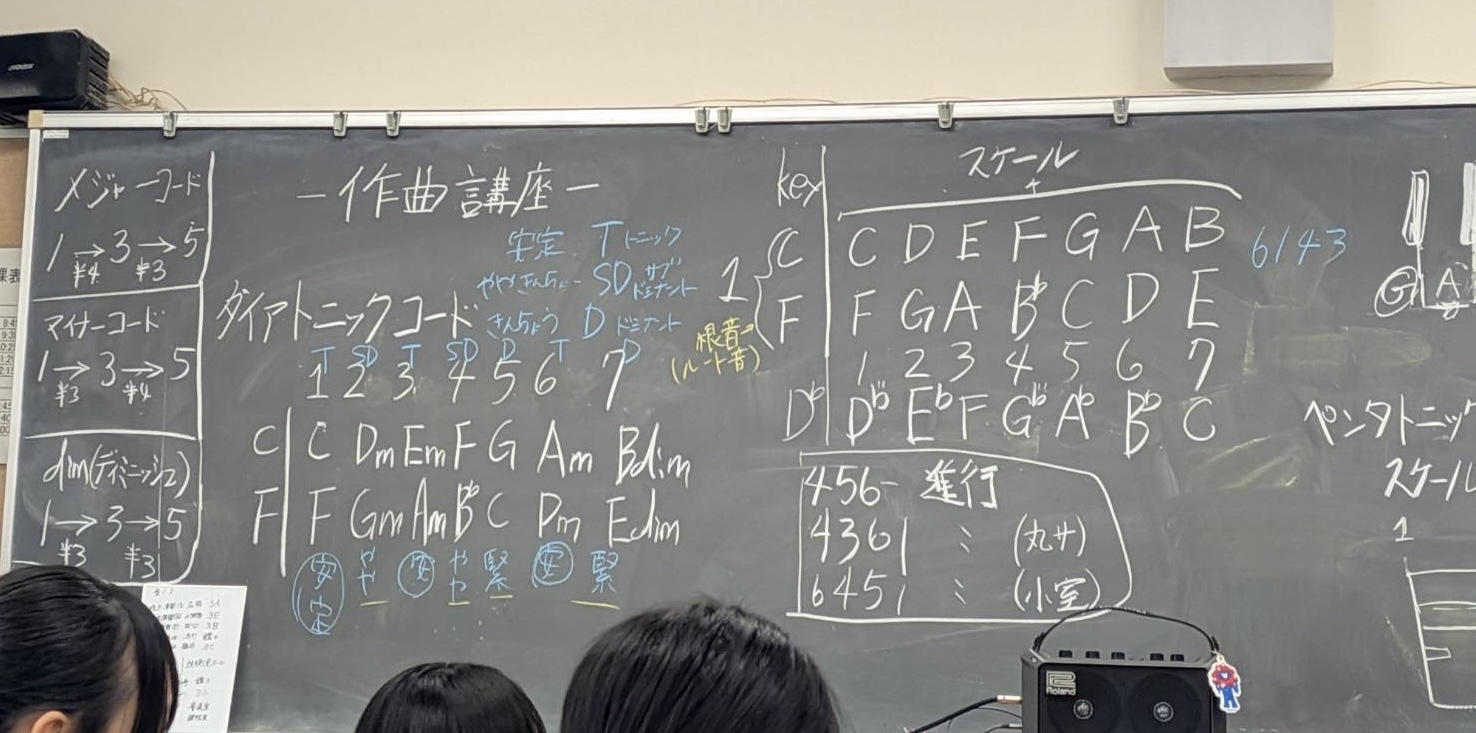 メジャーコード
1 → 3 → 5
半4 半3
マイナーコード
1 → 3 → 5
半3 半4
dim(ディミニッシュ)
1 → 3 → 5
半3 半3
ー作曲講座ー
安定 T トニック
ややきんちょー SD サブドミナント
きんちょう D ドミナント
ダイアトニックコード
T SD T SD D T D
1 2 3 4 5 6 7
C C Dm Em F G Am Bdim
F F Gm Am B♭ C Dm Edim
安定 やや 安 やや 緊 安 緊
key スケール
C C D E F G A B 6143
1
F F G A B♭ C D E
根音→
(ルート音)
1 2 3 4 5 6 7
D♭ D♭ E♭ F G♭ A♭ B♭ C
456- 進行
4361 〃 (丸サ)
6451 〃 (小室)
G A
ペンタトニッ
スケール
1
Roland